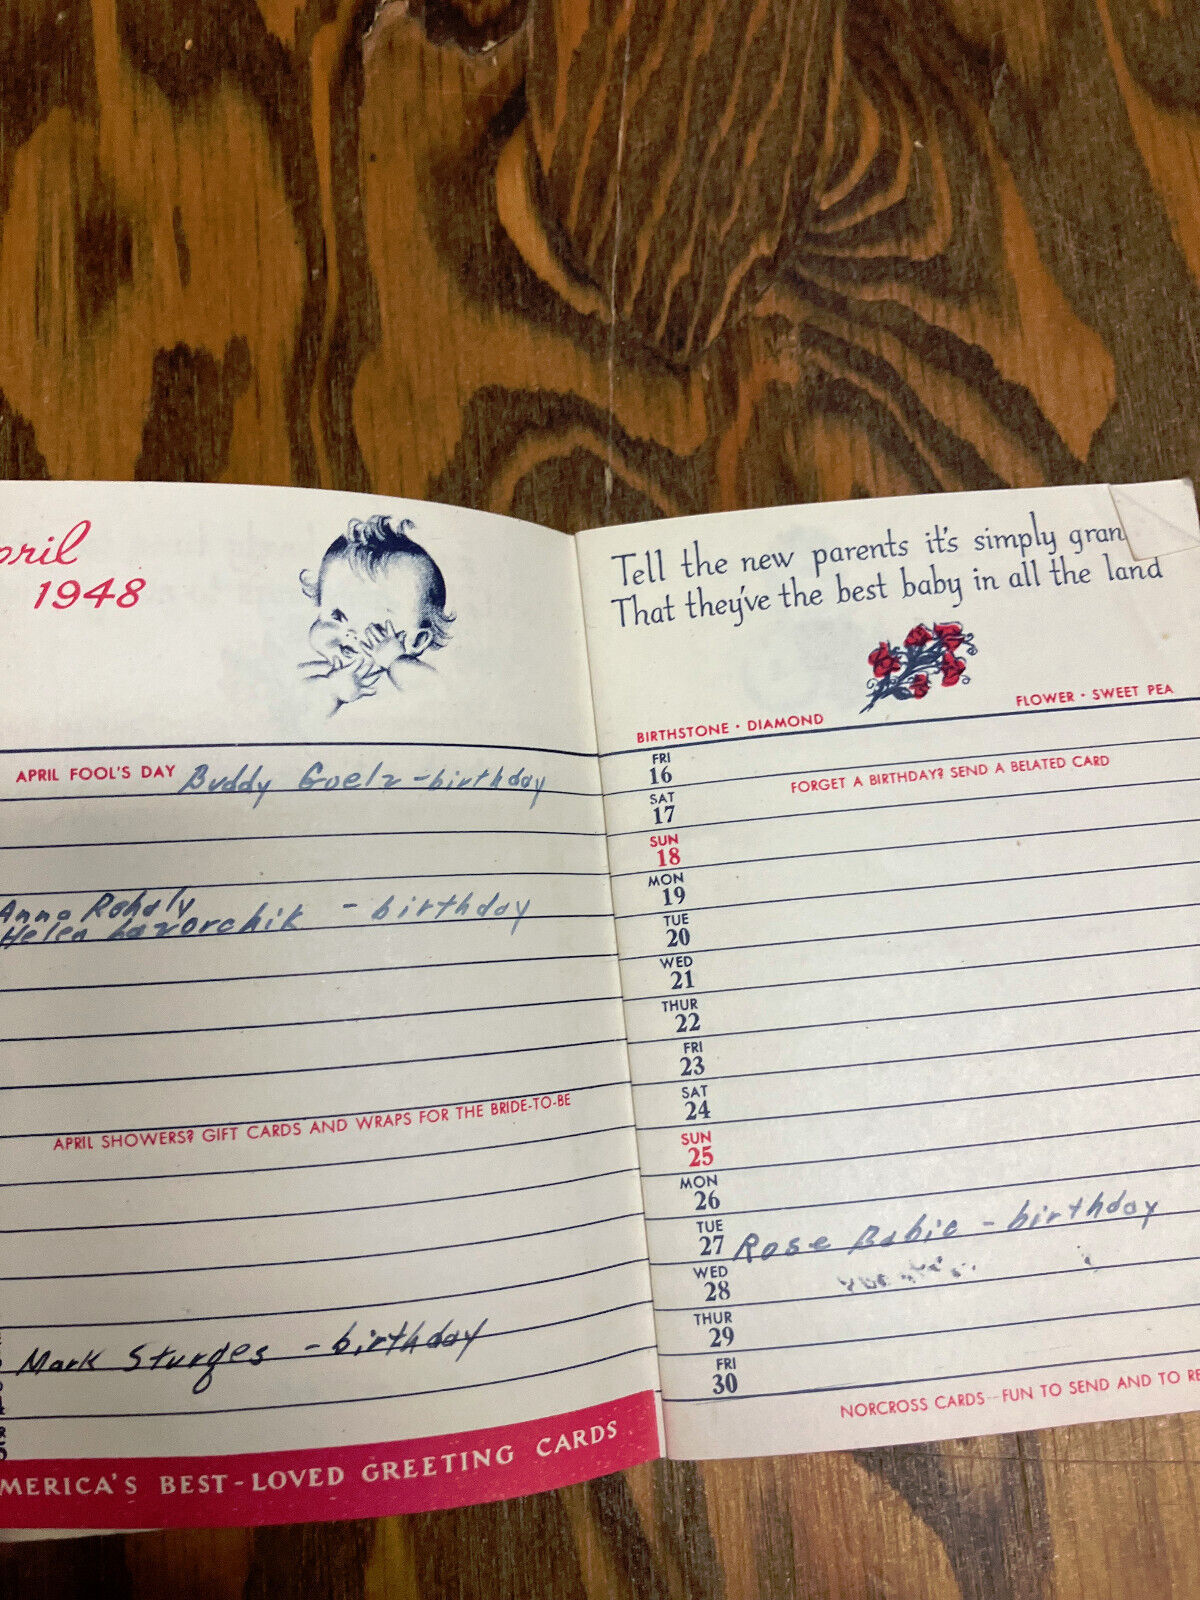 pril
1948
APRIL FOOL'S DAY Buddy Goelz - birthday
Anna Rohaly
Helen Lazorchik - birthday
APRIL SHOWERS? GIFT CARDS AND WRAPS FOR THE BRIDE-TO-BE
Mark Sturges - birthday
MERICA'S BEST-LOVED GREETING CARDS
Tell the new parents it's simply gran
That they've the best baby in all the land
BIRTHSTONE · DIAMOND
FLOWER · SWEET PEA
FRI
16
FORGET A BIRTHDAY? SEND A BELATED CARD
SAT
17
SUN
18
MON
19
TUE
20
WED
21
THUR
22
FRI
23
SAT
24
SUN
25
MON
26
TUE
27 Rose Babic - birthday
WED
28
THUR
29
FRI
30
NORCROSS CARDS—FUN TO SEND AND TO RE